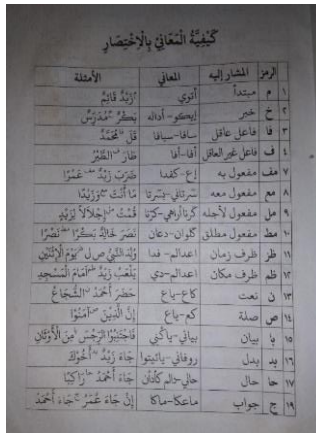 كَيْفِيَّةُ الْمَعَانِيْ بِالْاِخْتِصَارِ
الرمز المشار إليه المعاني الأمثلة
١ م مبتدأ أتوي زَيْدٌ قَائِمٌ
٢ خ خبر إيكو - أداله بَكْرٌ مُدَرِّسٌ
٣ فا فاعل عاقل سافا - سيافا قَلَّ مُحَمَّدٌ
٤ ف فاعل غير العاقل أفا - أفا طَارَ الطَّيْرُ
مف مفعول به إع - كفدا ضَرَبَ زَيْدٌ عَمْرًا
٨ مع مفعول معه سرتاني - بسرتا مَا أَنْتَ وَزَيْدًا
٩ مل مفعول لأجله كرنا قُمْتُ إِجْلَالًا لِزَيْدٍ
١٠ مط مفعول مطلق كلوان - دعان نَصَرَ خَالِدٌ بَكْرًا نَصْرًا
١١ ظز ظرف زمان إعدالم - فدا وُلِدَ النَّبِيُّ ص ل يَوْمَ الْاِثْنَيْنِ
١٢ ظم ظرف مكان إعدالم - دي يَلْعَبُ زَيْدٌ أَمَامَ الْمَسْجِدِ
١٣ ن نعت كاع - ياع حَضَرَ أَحْمَدُ الشُّجَاعُ
١٤ ص صلة كم - ياع إِنَّ الَّذِيْنَ آمَنُوْا
١٥ با بيان بياني - ياكني فَاجْتَنِبُوا الرِّجْسَ مِنَ الْأَوْثَانِ
١٦ بد بدل روفاني - يائيتوا جَاءَ زَيْدٌ أَخُوْكَ
١٧ حا حال حالي - دالم كأدأن جَاءَ أَحْمَدُ رَاكِبًا
١٩ ج جواب ماعكا - ماكا إِنْ جَاءَ عُمَرُ جَاءَ أَحْمَدُ